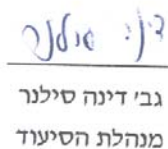 דינה סילנר
גב' דינה סילנר
מנהלת הסיעוד